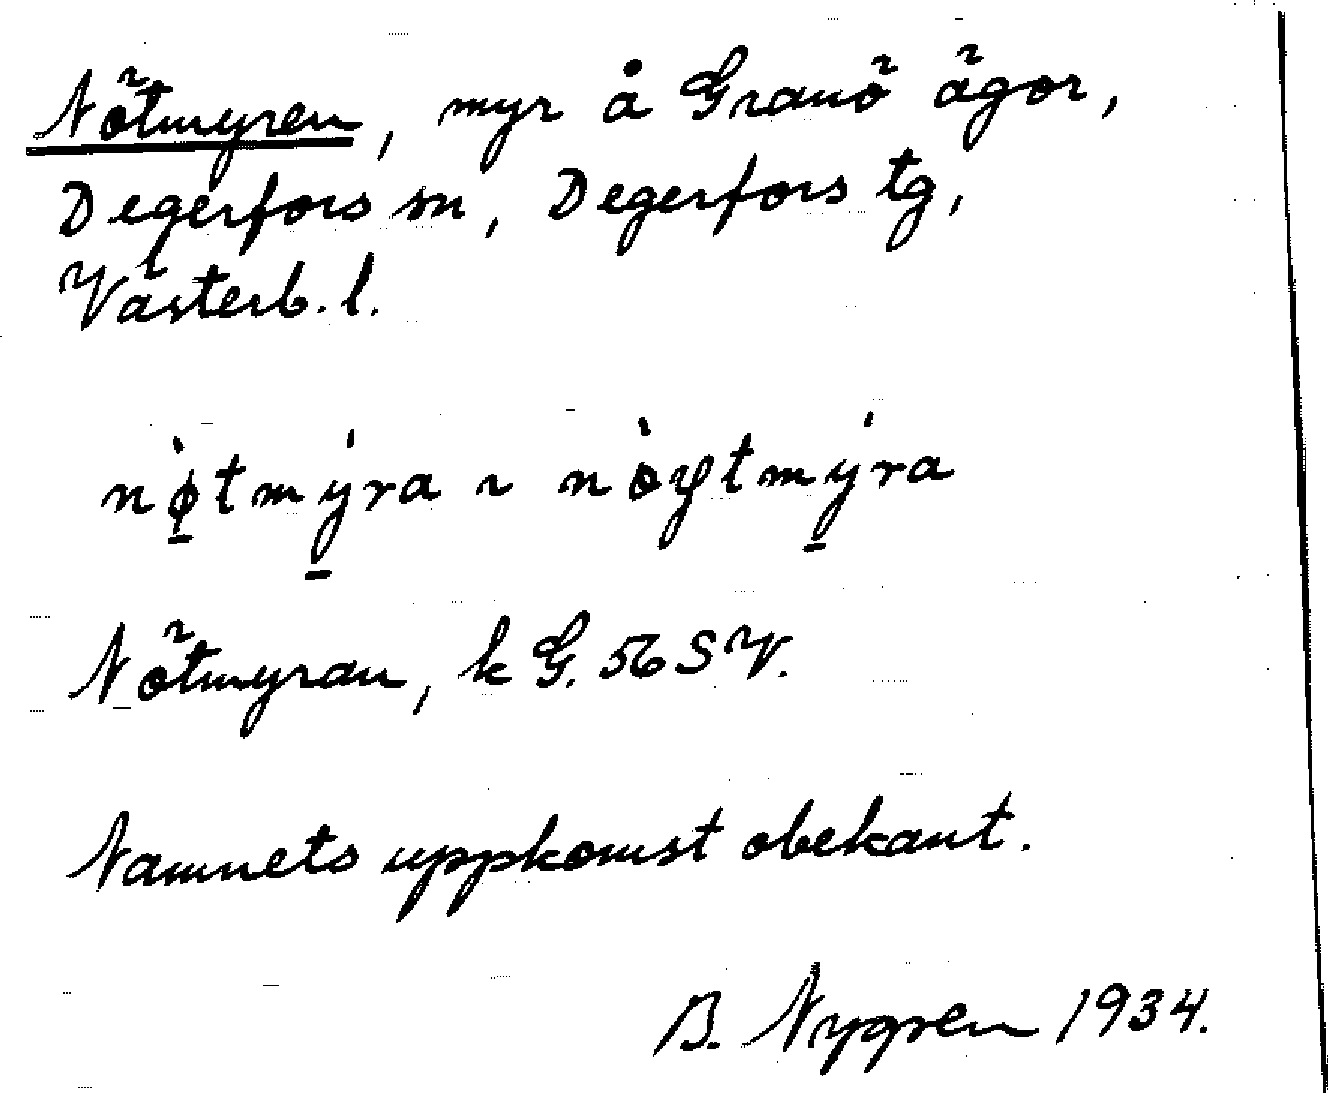 Nötmyren, myr å Granö ägor,
Degerfors sn, Degerfors tg,
Västerb. l.
nø̀tmýra ~ nòytmýra
Nötmyran, k G. 56 SV.
Namnets uppkomst obekant.
B. Nygren 1934.